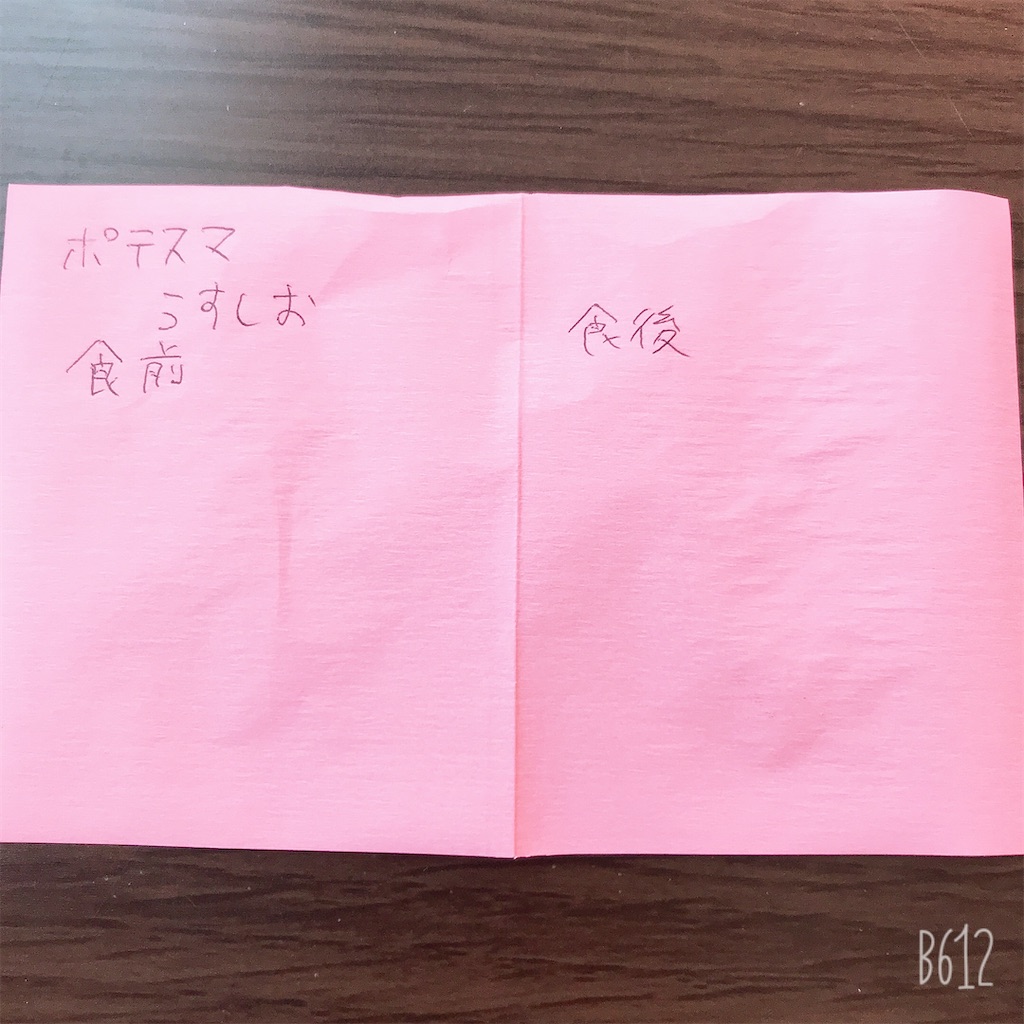 ポテスマ
うすしお
食前
食後
B612